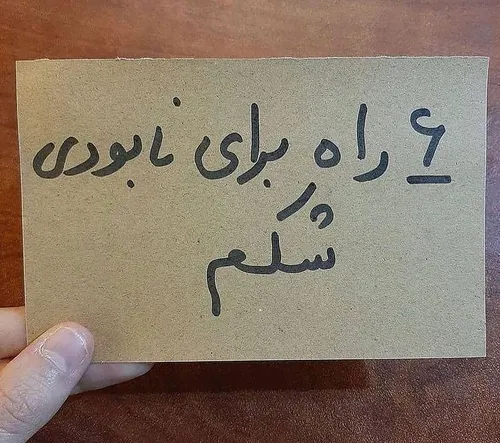 ۶ راه برای نابودی
شکم